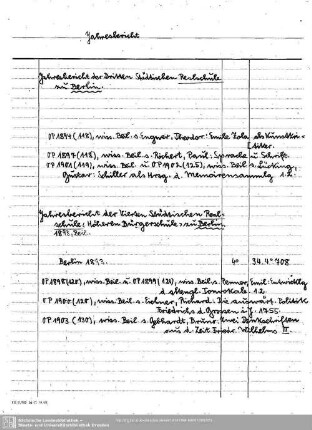 Jahresbericht
Jahresbericht der Dritten Städtischen Realschule
zu Berlin.
OP 1894 (118), wiss. Beil. s. Engwer, Theodor: Emile Zola als Kunstkri-
[tiker.
OP 1897 (118), wiss. Beil. s. Röchert, Paul: Sprache u. Schrift.
OP 1901 (119), wiss. Beil. u. OP 1902 (125), wiss. Beil. s. Lücking,
Gustav: Schiller als Hrsg. d. Memoirensammlg. 1.2.
Jahresbericht der Vierten Städtischen Real-
schule (Höheren Bürgerschule) zu Berlin.
1893, Beil.
Berlin 1893. 4° 34.4° 708
OP 1898 (120), wiss. Beil. u. OP 1899 (121), wiss. Beil. s. Penner, Emil: Entwicklg
d. altengl. Tonvokale. 1.2
OP 1900 (120), wiss. Beil. s. Fechner, Richard: Die auswärt. Politik
Friedrichs d. Grossen i. J. 1755.
OP 1903 (130), wiss. Beil. s. Gebhardt, Bruno: Zwei Denkschriften
aus d. Zeit Friedr. Wilhelms II.